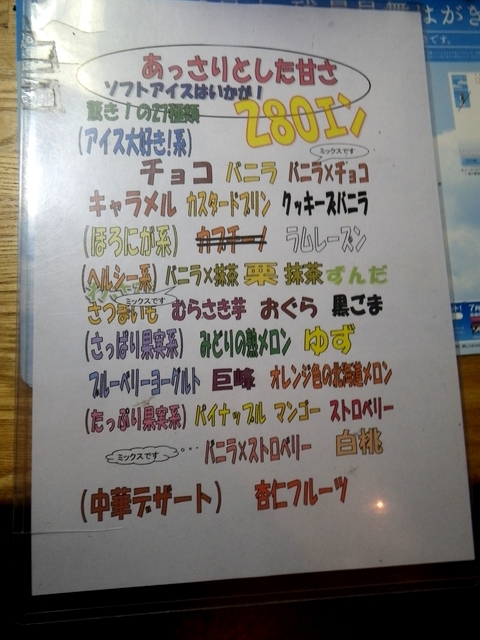 あっさりとした甘さ
ソフトアイスはいかが！
驚き！の27種類
280エン
(アイス大好き！系)
ミックスです
チョコ バニラ バニラ×チョコ
キャラメル カスタードプリン クッキーズバニラ
(ほろにが系) カプチーノ ラムレーズン
(ヘルシー系) バニラ×抹茶 栗 抹茶 ずんだ
ミックスです
さつまいも むらさき芋 おぐら 黒ごま
(さっぱり果実系) みどりの熟メロン ゆず
ブルーベリーヨーグルト 巨峰 オレンジ色の北海道メロン
(たっぷり果実系) パイナップル マンゴー ストロベリー
ミックスです バニラ×ストロベリー 白桃
(中華デザート) 杏仁フルーツ
はがき